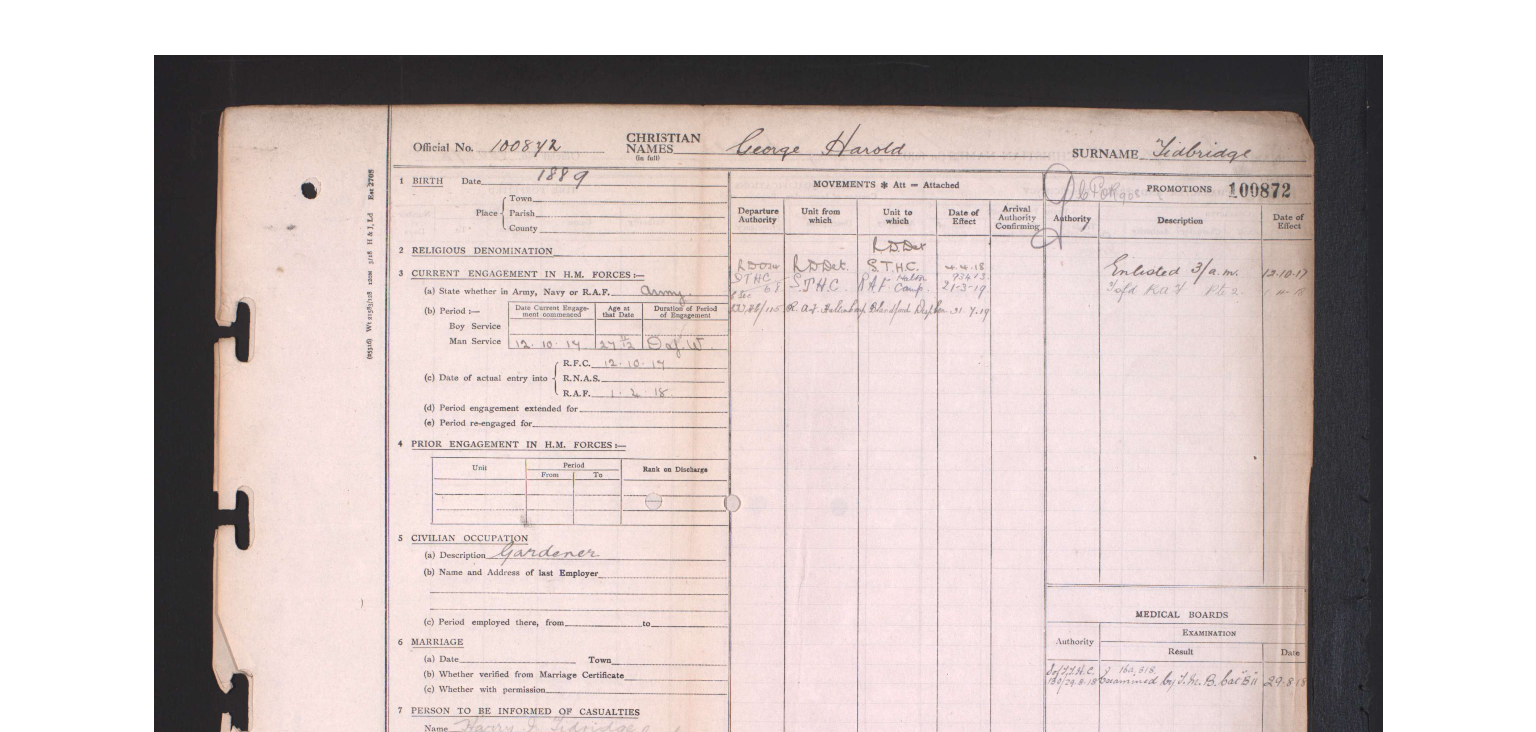 Official No. 100872 CHRISTIAN NAMES (in full) George Harold SURNAME Tidbridge
1 BIRTH Date 1889
Place Town
Parish
County
2 RELIGIOUS DENOMINATION
3 CURRENT ENGAGEMENT IN H.M. FORCES:—
(a) State whether in Army, Navy or R.A.F. Army.
(b) Period:— Date Current Engagement commenced Age at that Date Duration of Period of Engagement
Boy Service
Man Service 12.10.17 D of W.
(c) Date of actual entry into R.F.C. 12.10.17
R.N.A.S.
R.A.F.
(d) Period engagement extended for
(e) Period re-engaged for
4 PRIOR ENGAGEMENT IN H.M. FORCES:—
Unit Period Rank on Discharge
From To
5 CIVILIAN OCCUPATION
(a) Description Gardener
(b) Name and Address of last Employer
(c) Period employed there, from to
6 MARRIAGE
(a) Date Town
(b) Whether verified from Marriage Certificate
(c) Whether with permission
7 PERSON TO BE INFORMED OF CASUALTIES
Name Harry
MOVEMENTS * Att = Attached
Departure Authority Unit from which Unit to which Date of Effect Arrival Authority Confirming
R.D.Det
R.D.Det. S.T.H.C. 4.4.18
STHC S.T.H.C. R.A.F. Halton Camp. 21-3-19
R.A.F. Blandford 31.7.19
PROMOTIONS 100872
Authority Description Date of Effect
Enlisted 3/a.m. 12.10.17
R.A.F. Pte 2.
MEDICAL BOARDS
Authority EXAMINATION
Result Date
Examined by T.M.B. Cat Bii 29.8.18
(05316) Wt 3/18 H & J, Ld Est 2708